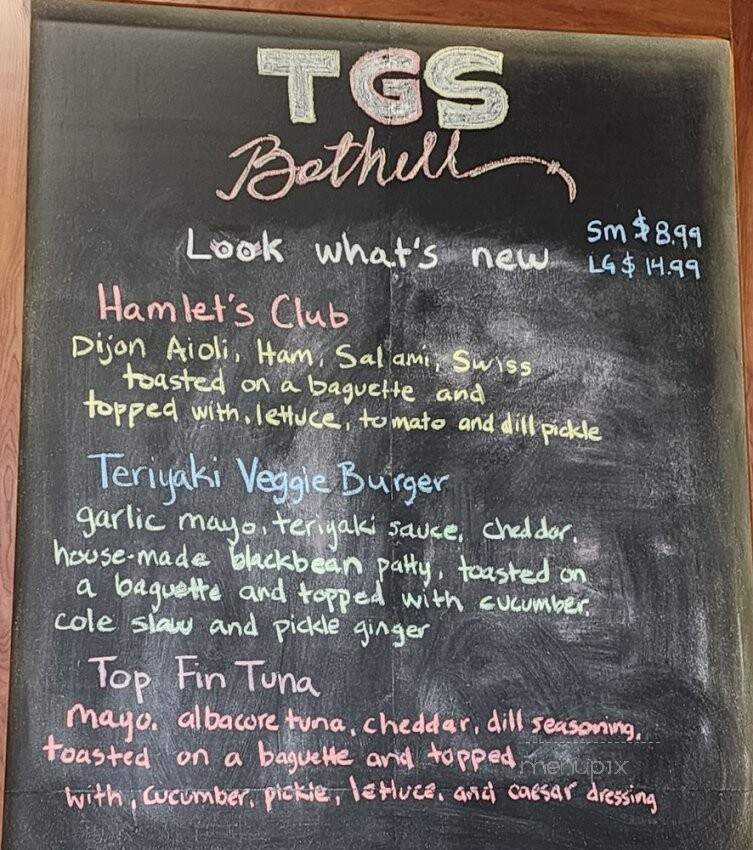 TGS
Bothell
Look what's new
Sm $8.99
LG $14.99
Hamlet's Club
Dijon Aioli, Ham, Salami, Swiss
toasted on a baguette and
topped with, lettuce, tomato and dill pickle
Teriyaki Veggie Burger
garlic mayo, teriyaki sauce, cheddar,
house-made blackbean patty, toasted on
a baguette and topped with cucumber,
cole slaw and pickle ginger
Top Fin Tuna
mayo, albacore tuna, cheddar, dill seasoning,
toasted on a baguette and topped
with, cucumber, pickle, lettuce, and caesar dressing
menupix